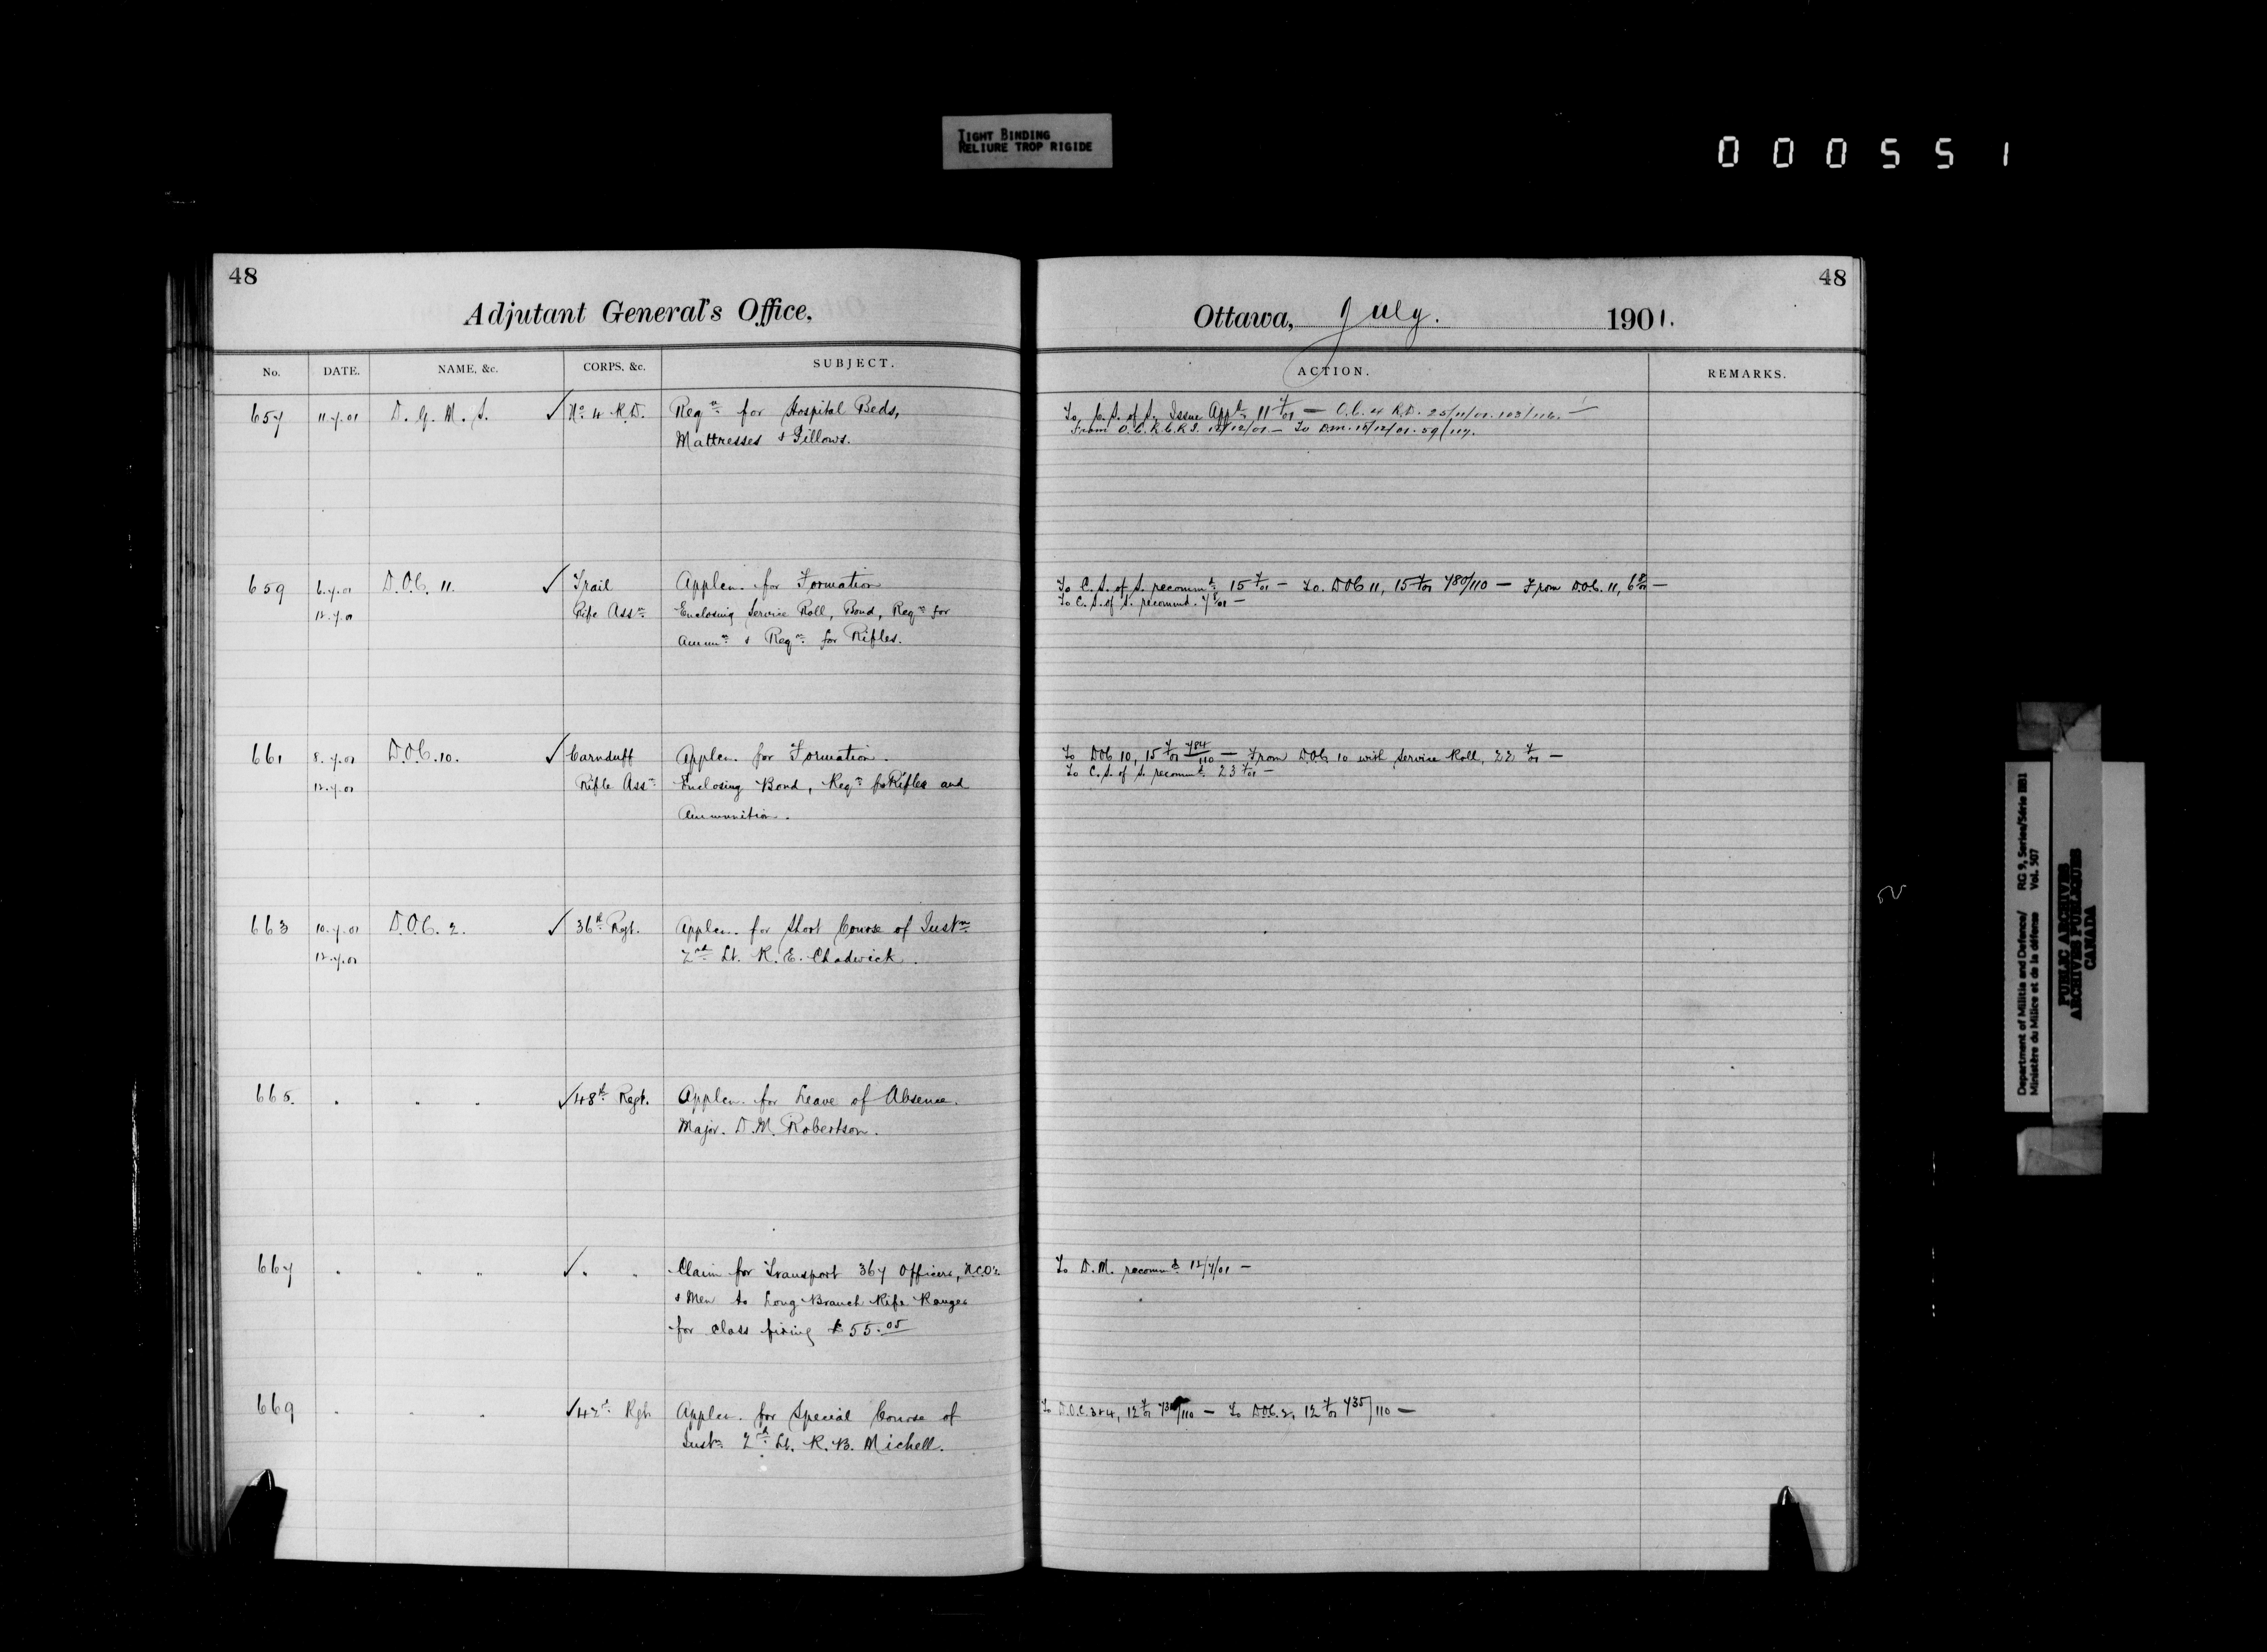 TIGHT BINDING
RELIURE TROP RIGIDE
000551
48
Adjutant General's Office,
No. DATE. NAME, &c. CORPS, &c. SUBJECT.
657 11.7.01 D. G. M. S. ✓ No 4 R.D. Reqn for Hospital Beds,
Mattresses & Pillows.
659 6.7.01 D.O.C. 11. ✓ Trail Applcn. for Formation
12.7.01 Rifle Assn Enclosing Service Roll, Bond, Reqn for
Ammn & Reqn for Rifles.
661 8.7.01 D.O.C. 10. ✓ Carnduff Applcn. for Formation.
12.7.01 Rifle Assn Enclosing Bond, Reqn for Rifles and
Ammunition.
663 10.7.01 D.O.C. 2. ✓ 36th Rgt. Applcn. for Short Course of Instn
12.7.01 2nd Lt. R. E. Chadwick.
665. " " " ✓ 48th Regt. Applcn. for Leave of Absence.
Major. D.M. Robertson.
667 " " " ✓ " " Claim for Transport 367 Officers, N.C.Os
& Men to Long Branch Rifle Ranges
for class firing $55.05
669 " " " ✓ 42nd Rgt. Applcn. for Special Course of
Instn 2nd Lt. R. B. Michell.
48
Ottawa, July. 1901.
ACTION. REMARKS.
To C. S. of S. Issue Appd 11 7/01 — O.C. 4 R.D. 25/11/01. 103/116. —
From O.C. R.C.R.I. /12/01 — To D.M. /12/01. 59/117.
To C. S. of S. recommd 15 7/01 — To. DOC 11, 15 7/01 780/110 — From D.O.C. 11, 6 8/01 —
To C. S. of S. recommd. 7 8/01 —
To DOC 10, 15 7/01 784/110 — From D.O.C. 10 with Service Roll, 22 7/01 —
To C. S. of S. recommd 23 7/01 —
To D.M. recommd 12/7/01 —
To D.O.C. 3&4, 12 7/01 /110 — To D.O.C. 2, 12 7/01 735/110 —
Department of Militia and Defence/ RG 9, Series/Série IIB1
Ministère du Milice et de la défense Vol. 507
PUBLIC ARCHIVES
ARCHIVES PUBLIQUES
CANADA